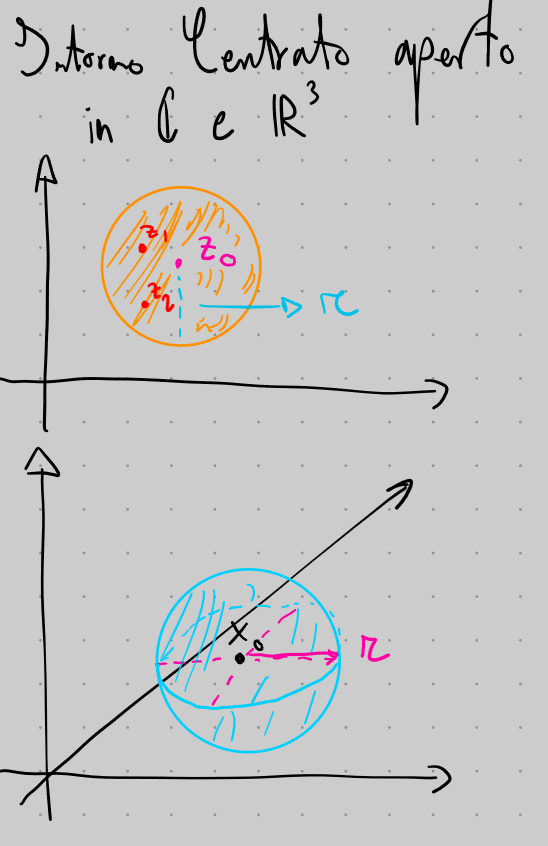 Intorno Centrato aperto
in ℂ e ℝ³
z₁
z₀
z₂
r
x₀
r